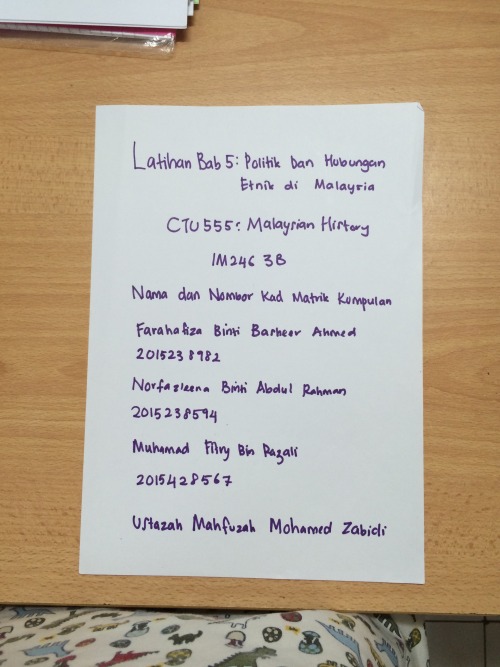 Latihan Bab 5: Politik Dan Hubungan
Etnik di Malaysia
CTU555: Malaysian History
IM246 3B
Nama dan Nombor Kad Matrik Kumpulan
Farahafiza Binti Basheer Ahmed
2015238982
Binti Abdul Rahman
2015238594
Muhamad Fitry Bin Razali
2015428567
Ustazah Mahfuzah Mohamed Zabidi